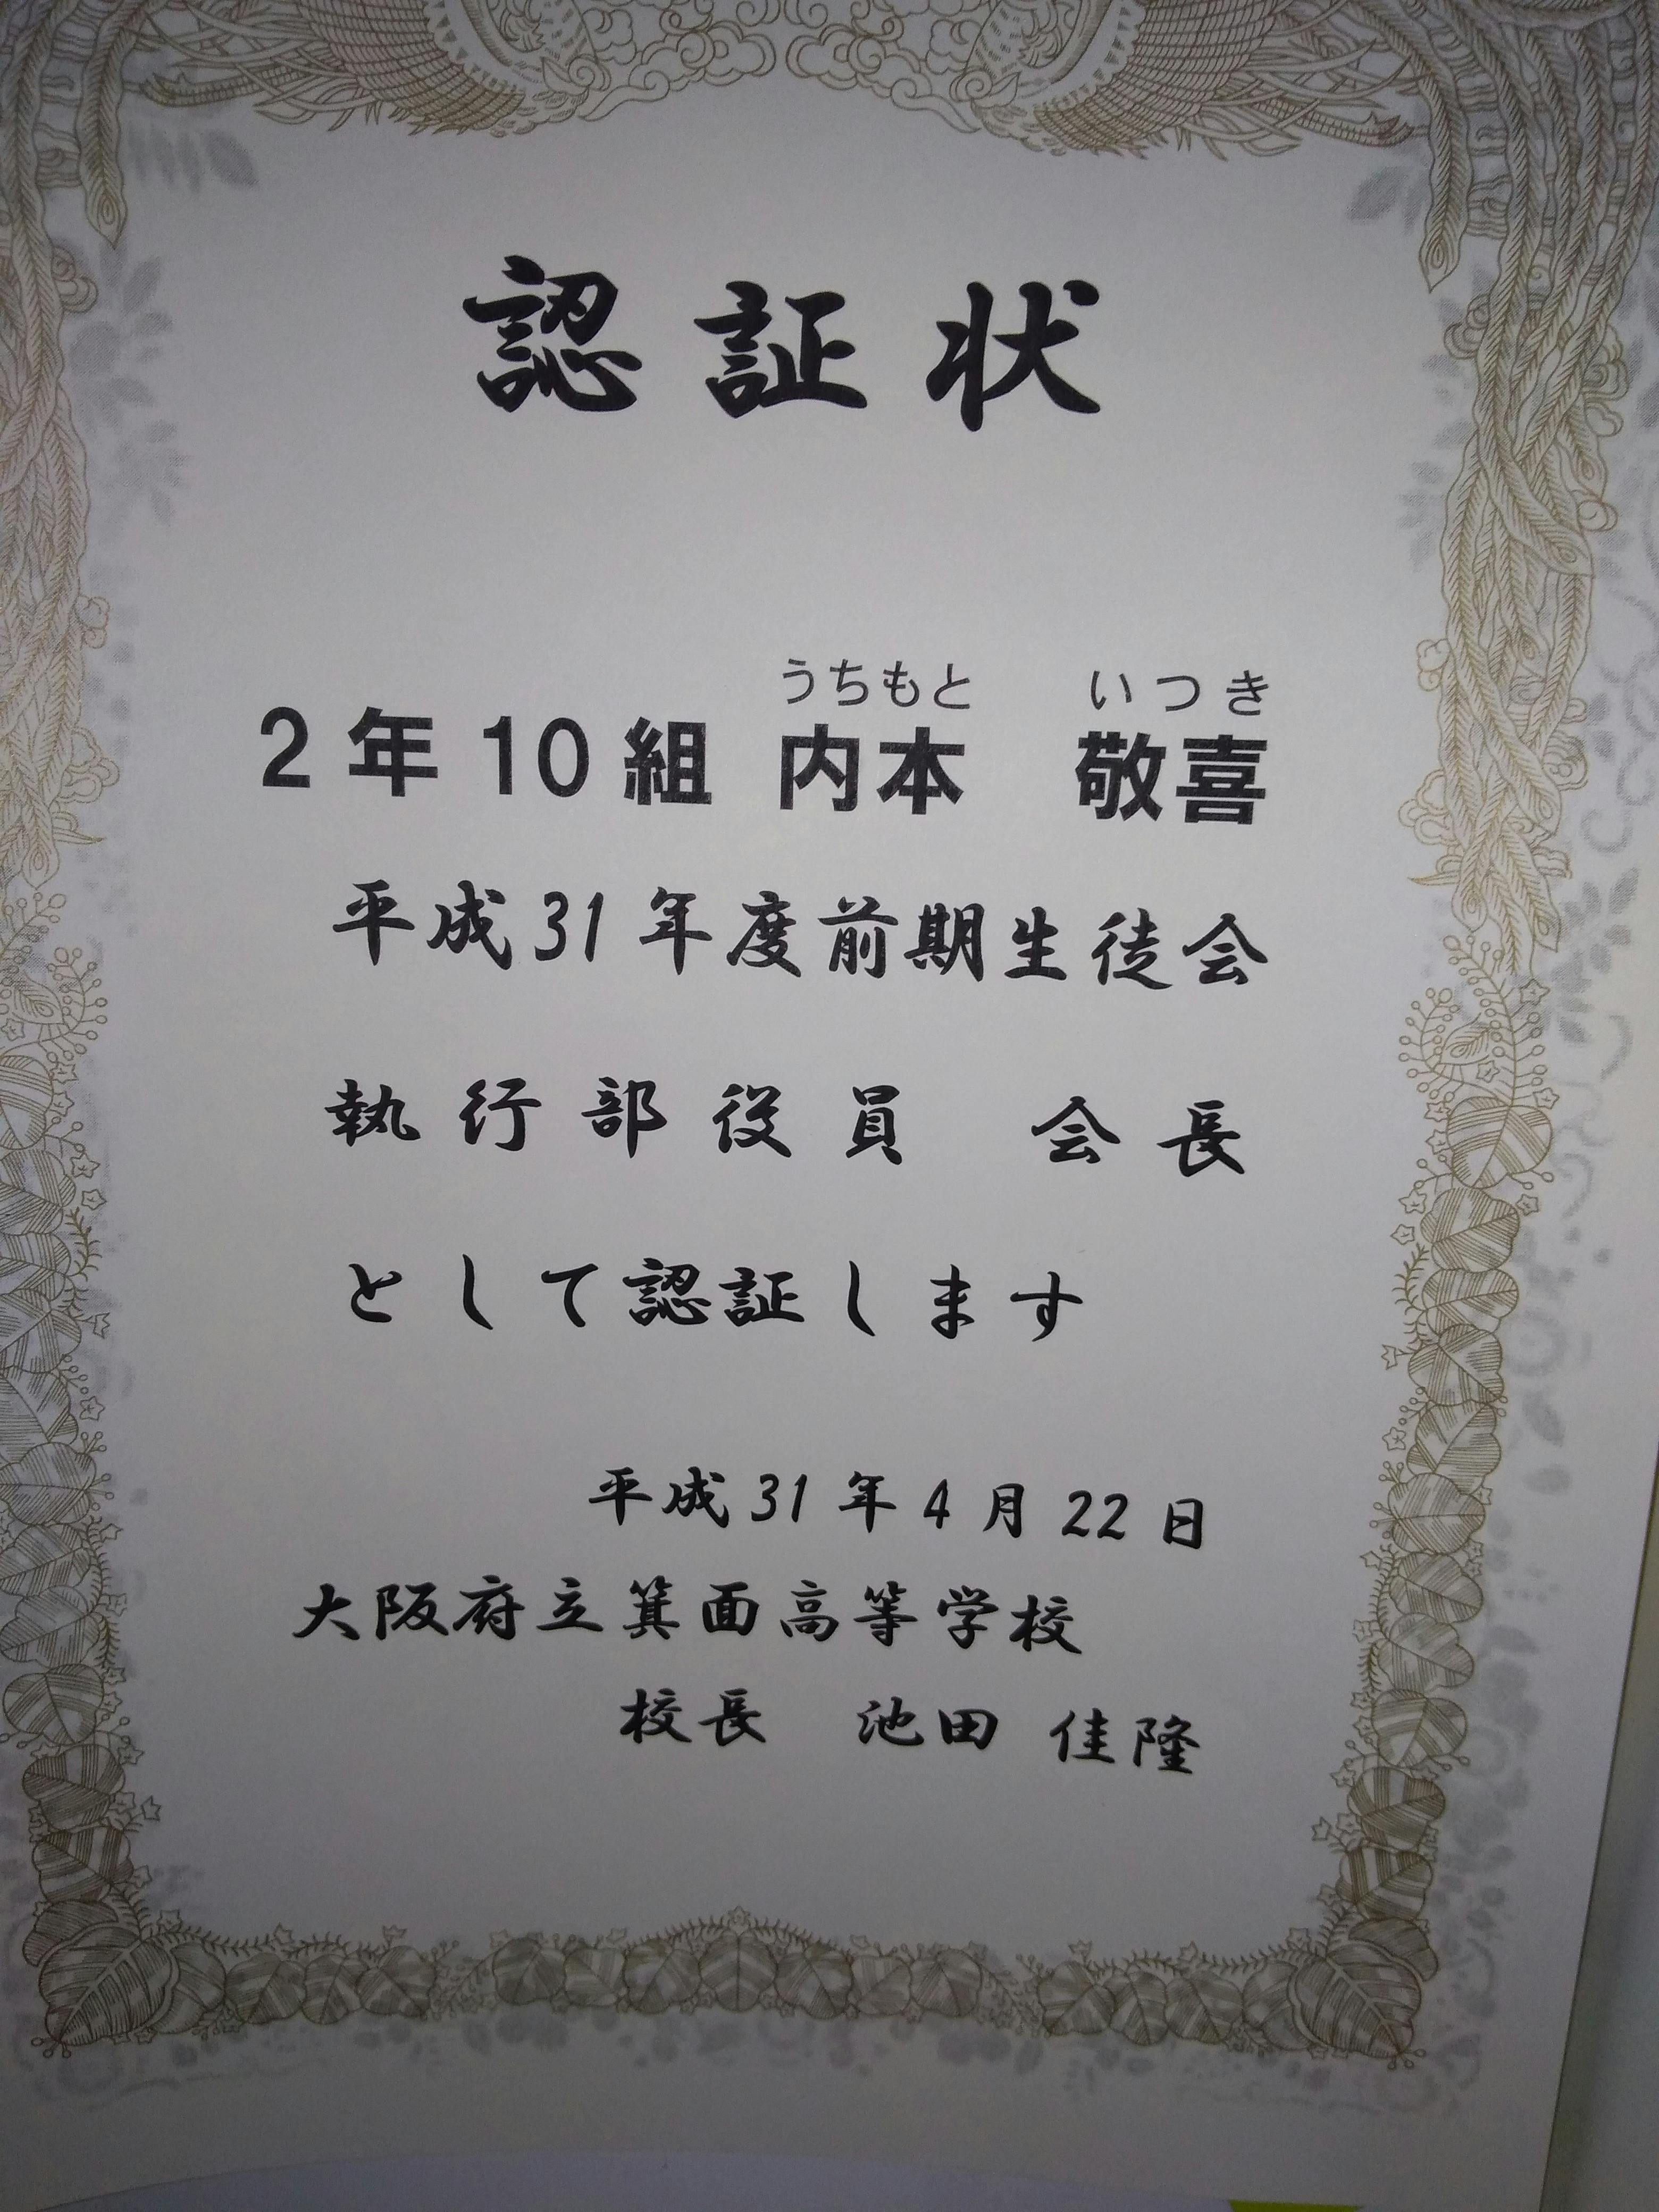 認証状
うちもと いつき
2年10組 内本 敬喜
平成31年度前期生徒会
執行部役員 会長
として認証します
平成31年4月22日
大阪府立箕面高等学校
校長 池田 佳隆